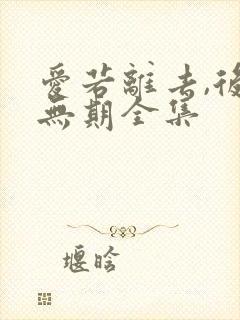 愛若離去,後
無期全集
堰晗